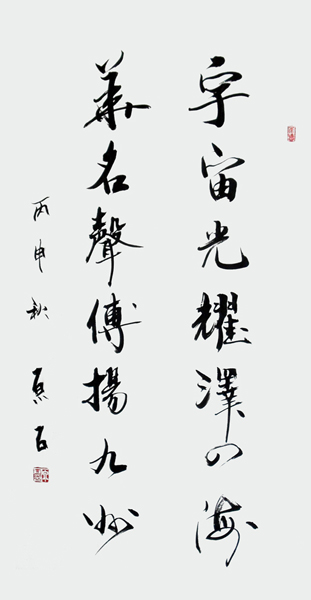 宇宙光耀澤四海
華名聲傳揚九州
丙申秋